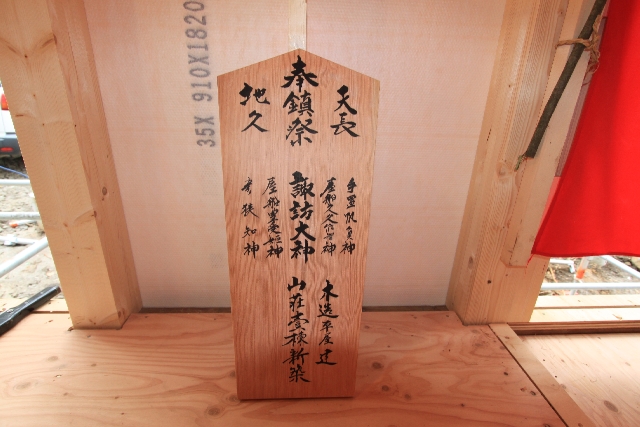 35X 910X1820
天長
奉鎮祭
地久
手置帆負神
屋船久久能智神
諏訪大神
屋船豊受姫神
彦狭知神
木造平屋建
山荘壹棟新築